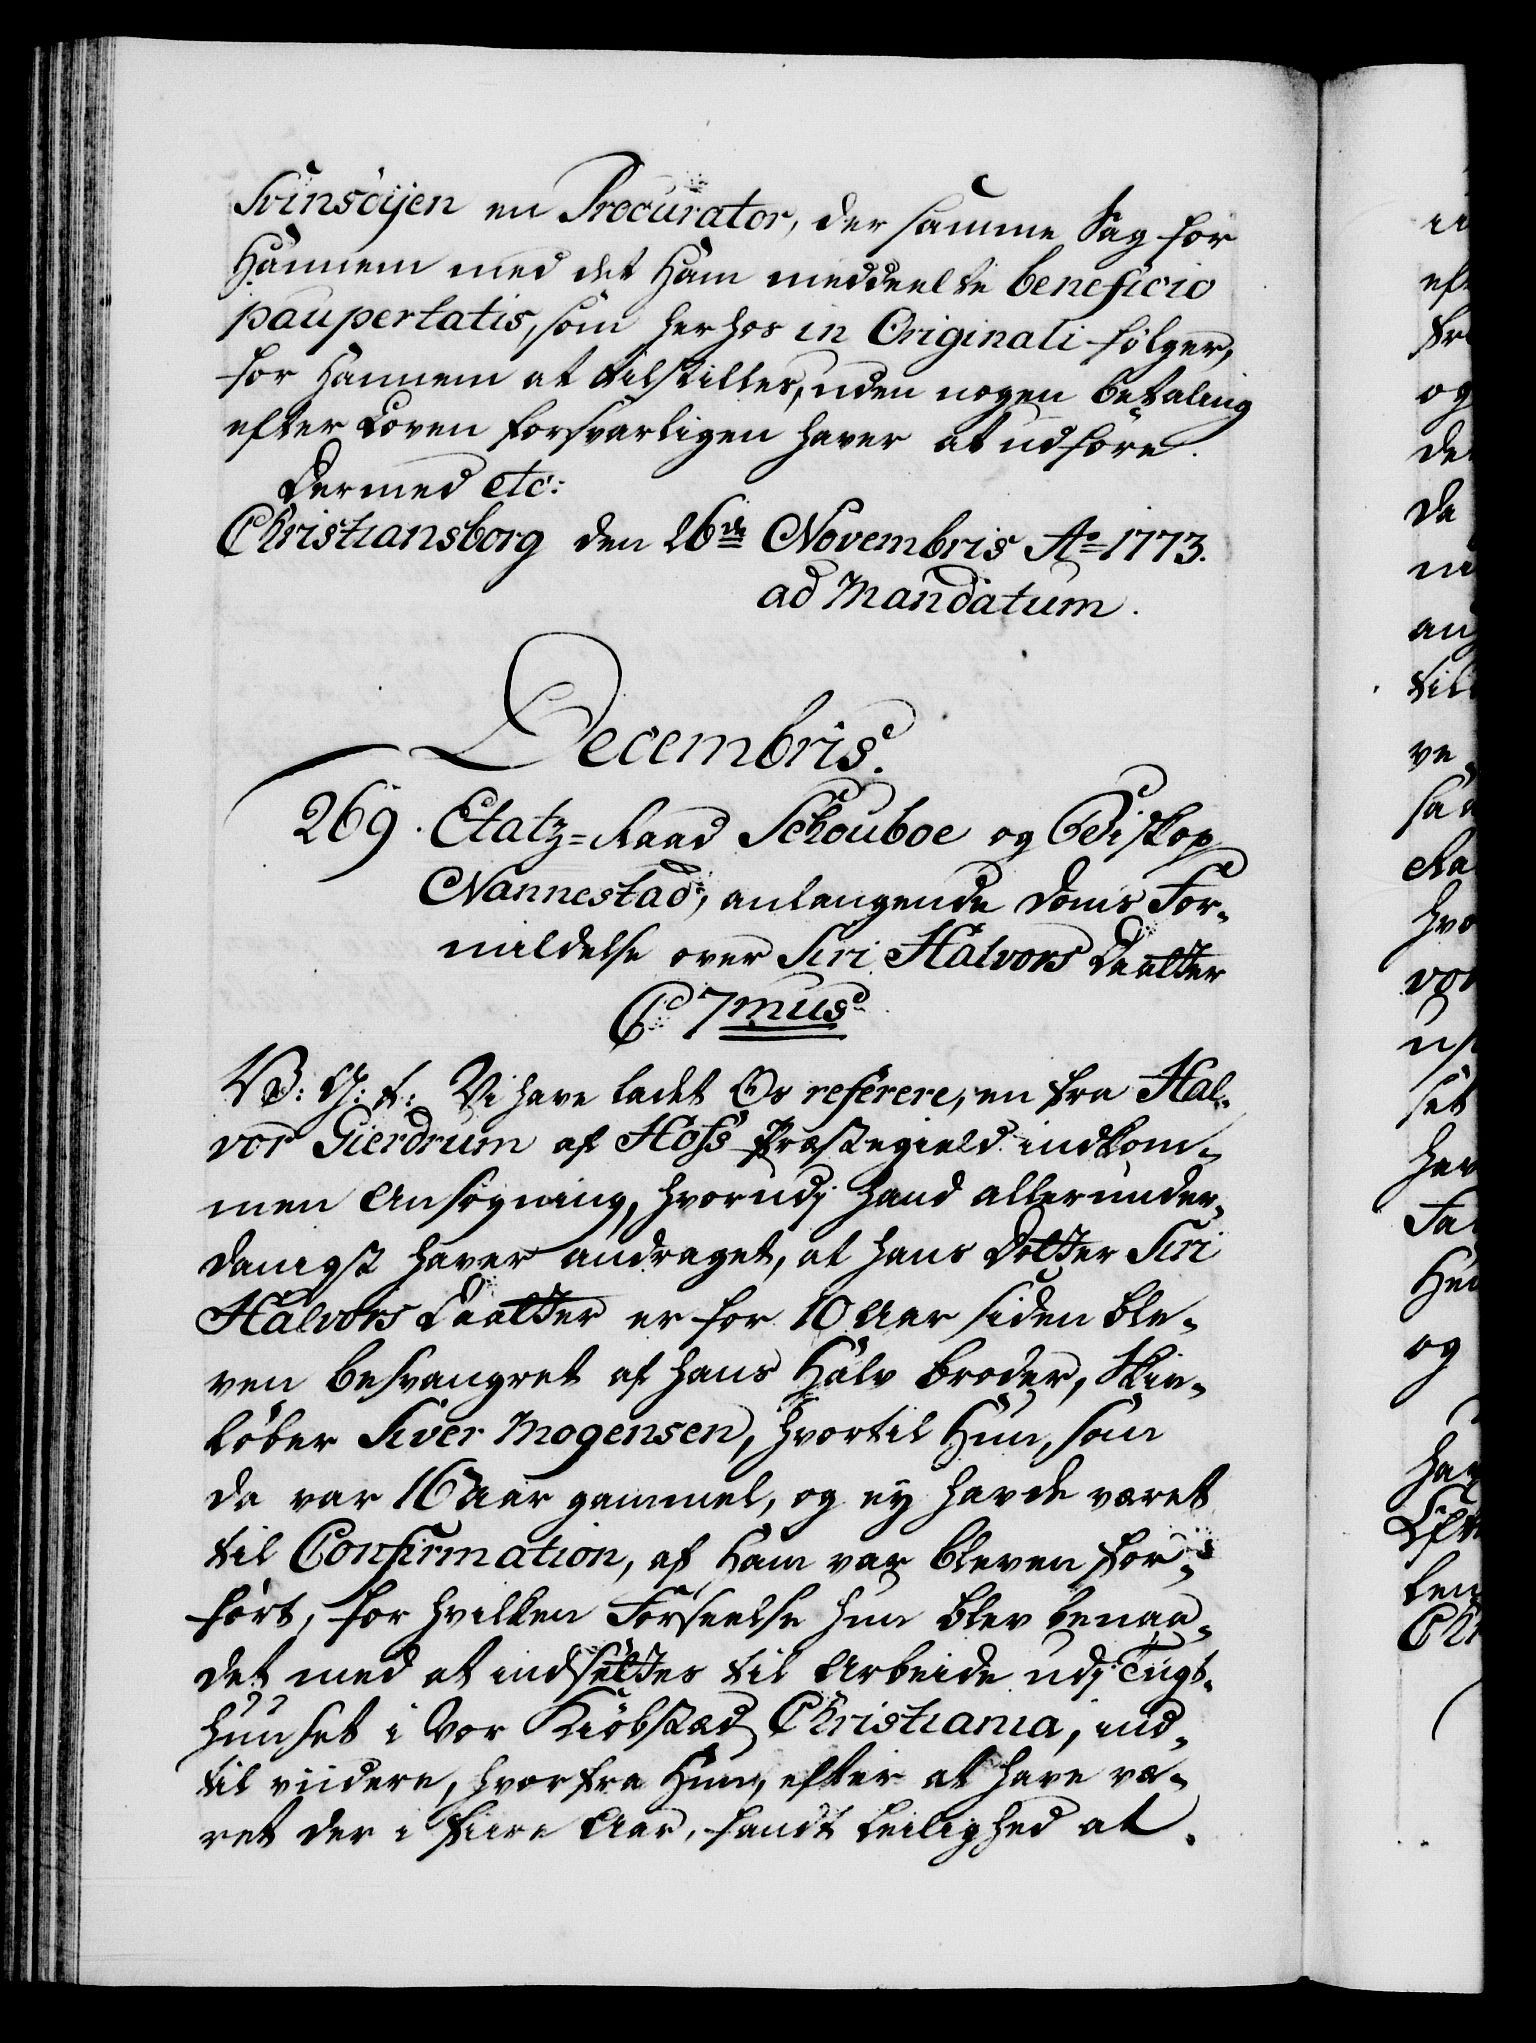 Svinsöijen en Procurator, der samme Sag for
Hannem med det Ham meddeelte beneficio
paupertatis, som herhos in Originali følger,
for Hannem at tilstilles, uden nogen betaling
efter Loven forsvarligen haver at udføre.
Dermed etc:
Christiansborg den 26de Novembris Ao 1773.
ad Mandatum.
Decembris.
269. Etatz=Raad Schouboe og Biskop
Nannestad, anlangende Doms For-
mildelse over Siri Halvors Daatter
C 7mus
V: G: t: Vi have ladet Os referere, en fra Hal-
vor Gierdrum af Hofs Præstegield indkom-
men Ansøgning, hvorudj hand allerunder-
danigst haver andraget, at hans Dotter Siri
Halvors Daatter er for 10 Aar siden ble-
ven besvangret af hans Halv broder, Skie-
løber Siver Mogensen, hvortil Hun, som
da var 16 Aar gammel, og ey havde været
til Confirmation, af Ham var bleven for-
ført, for hvilken Forseelse hun blev benaa-
det med at indsættes til Arbeide udj Tugt-
huuset i Vor Kiøbstad Christiania, ind-
til viidere, hvorfra Hun, efter at have væ-
ret der i fiire Aar, fandt Leilighed at